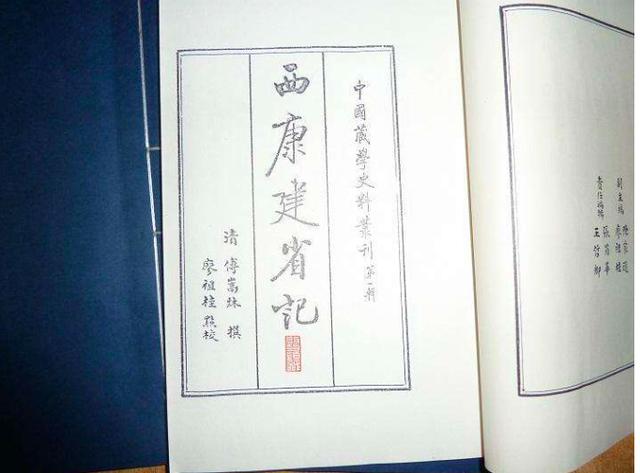 副主編
廖祖桂
責任編輯
中國藏學史料叢刊 第一輯
西康建省記
清 傅嵩炑 撰
廖祖桂 點校